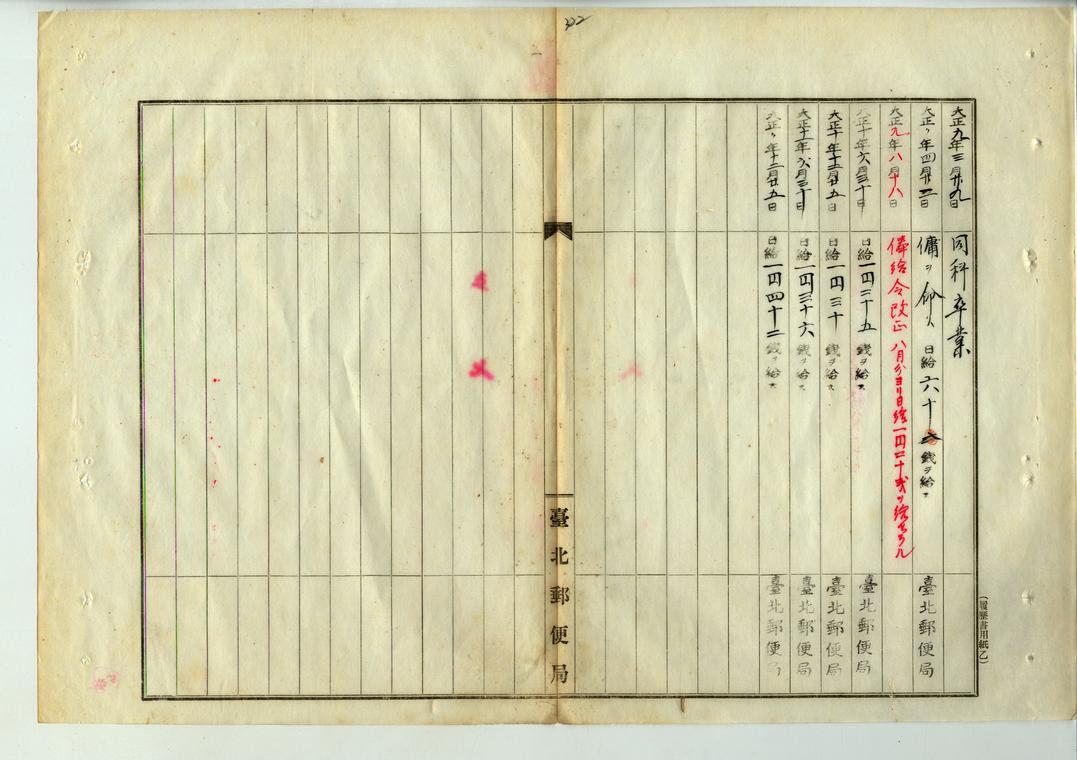 大正九年三月廿九日 同科卒業
大正〃年四月廿二日 傭ヲ命ス 日給六十錢ヲ給ス 臺北郵便局
大正九年八月十八日 俸給令改正 八月分ヨリ日給一円二十
大正十年六月三十日 日給一円二十五錢ヲ給ス 臺北郵便局
大正十年十二月廿五日 日給一円三十錢ヲ給ス 臺北郵便局
大正十一年六月三十日 日給一円三十六錢ヲ給ス 臺北郵便局
大正〃年十二月廿五日 日給一円四十二錢ヲ給ス 臺北郵便局
臺北郵便局
(履歷書用紙乙)